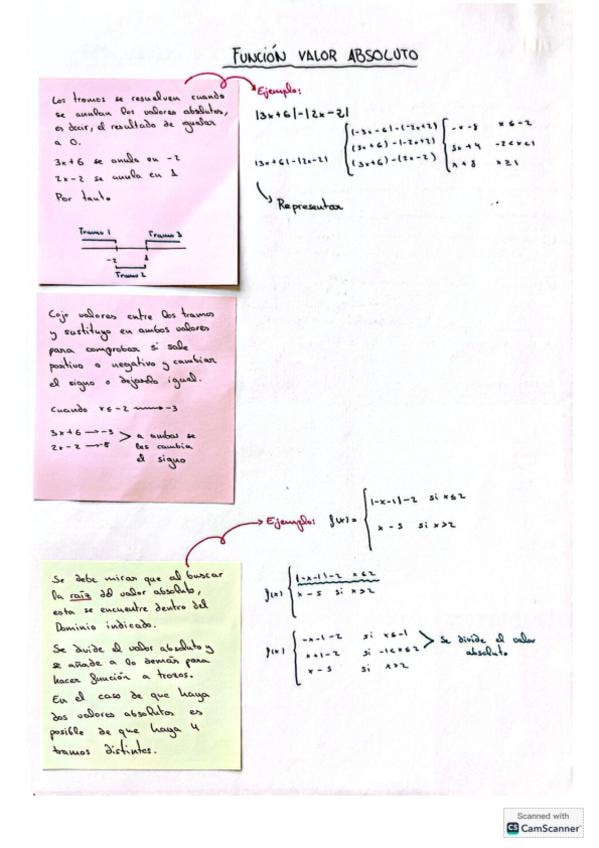 FUNCIÓN VALOR ABSOLUTO
Los tramos se resuelven cuando
se anulan los valores absolutos,
es decir, el resultado de igualar
a 0.
3x+6 se anula en -2
2x-2 se anula en 1
Por tanto
Tramo 1
Tramo 3
-2
1
Tramo 2
Ejemplo:
|3x+6|-|2x-2|
|3x+6|-|2x-2|
(-3x-6)-(-2x+2)
(3x+6)-(-2x+2)
(3x+6)-(2x-2)
-x-8 x≤-2
5x+4 -2<x<1
x+8 x≥1
Representar
Cojo valores entre los tramos
y sustituyo en ambos valores
para comprobar si sale
positivo o negativo y cambiar
el signo o dejarlo igual.
Cuando x≤-2 → -3
3x+6 → -3
2x-2 → -8
> a ambos se
les cambia
el signo
Ejemplo: f(x)=
|-x-1|-2 si x≤2
x-5 si x>2
Se debe mirar que al buscar
la raíz del valor absoluto,
esta se encuentre dentro del
Dominio indicado.
Se divide el valor absoluto y
se añade a lo demás para
hacer función a trozos.
En el caso de que haya
dos valores absolutos es
posible de que haya 4
tramos distintos.
f(x)
|-x-1|-2 x≤2
x-5 si x>2
f(x)
-x-1-2 si x≤-1
x+1-2 si -1<x≤2
x-5 si x>2
> Se divide el valor
absoluto
Scanned with
CS CamScanner